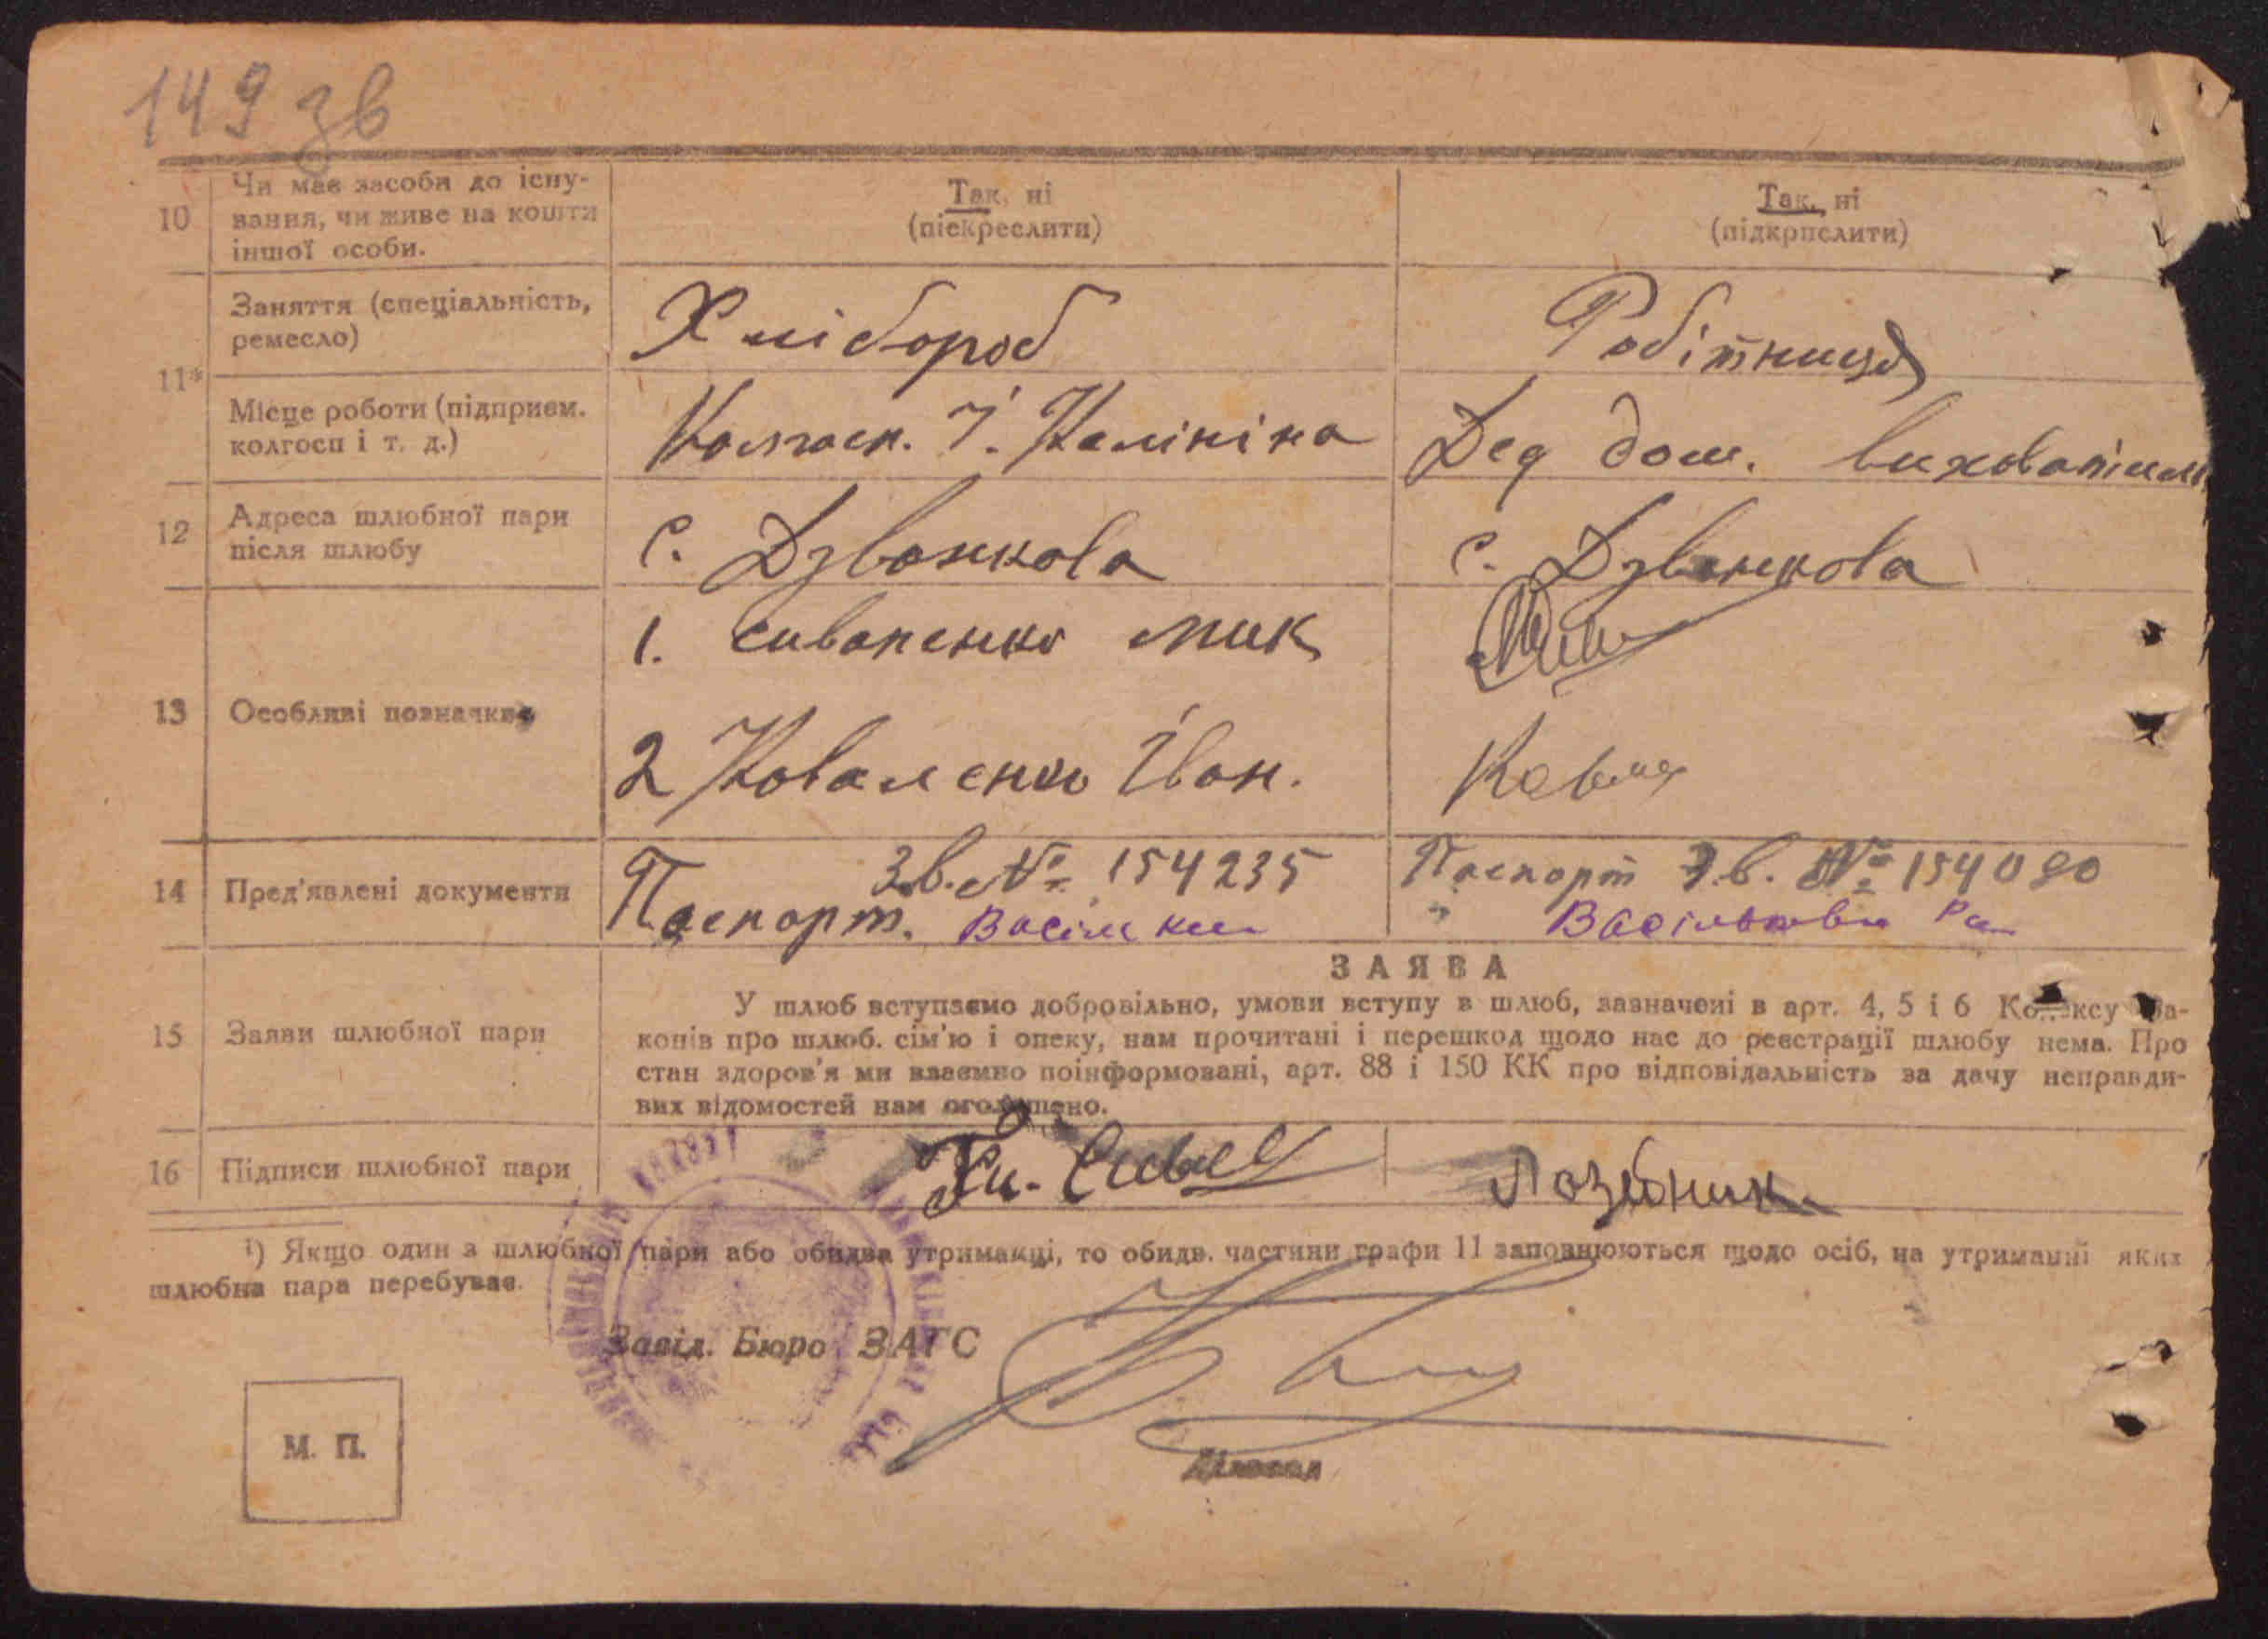 149 зв
10
Чи має засоби до існу-
вання, чи живе на кошти
іншої особи.
Так, ні
(піскреслити)
Так, ні
(підкрпслити)
11*
Заняття (спеціальність,
ремесло)
Хлібороб
Робітниця
Місце роботи (підприєм.
колгосп і т. д.)
Колгосп. І. Калініна
Дед дош.
12
Адреса шлюбної пари
після шлюбу
с. Дзвонкова
с. Дзвонкова
13
Особливі позначки
1. Сиваненко Мик
2 Коваленко Іван.
14
Пред'явлені документи
Зв. № 154235
Паспорт.
Паспорт Зв. № 154090
15
Заяви шлюбної пари
ЗАЯВА
У шлюб вступаємо добровільно, умови вступу в шлюб, зазначені в арт. 4, 5 і 6 Кодексу За-
конів про шлюб. сім'ю і опеку, нам прочитані і перешкод щодо нас до реєстрації шлюбу нема. Про
стан здоров'я ми взаємно поінформовані, арт. 88 і 150 КК про відповідальність за дачу неправди-
вих відомостей нам оголошено.
16
Підписи шлюбної пари
¹) Якщо один з шлюбної пари або обидва утриманці, то обидв. частини графи 11 заповнюються щодо осіб, на утриманні яких
шлюбна пара перебуває.
Завід. Бюро ЗАГС
М. П.